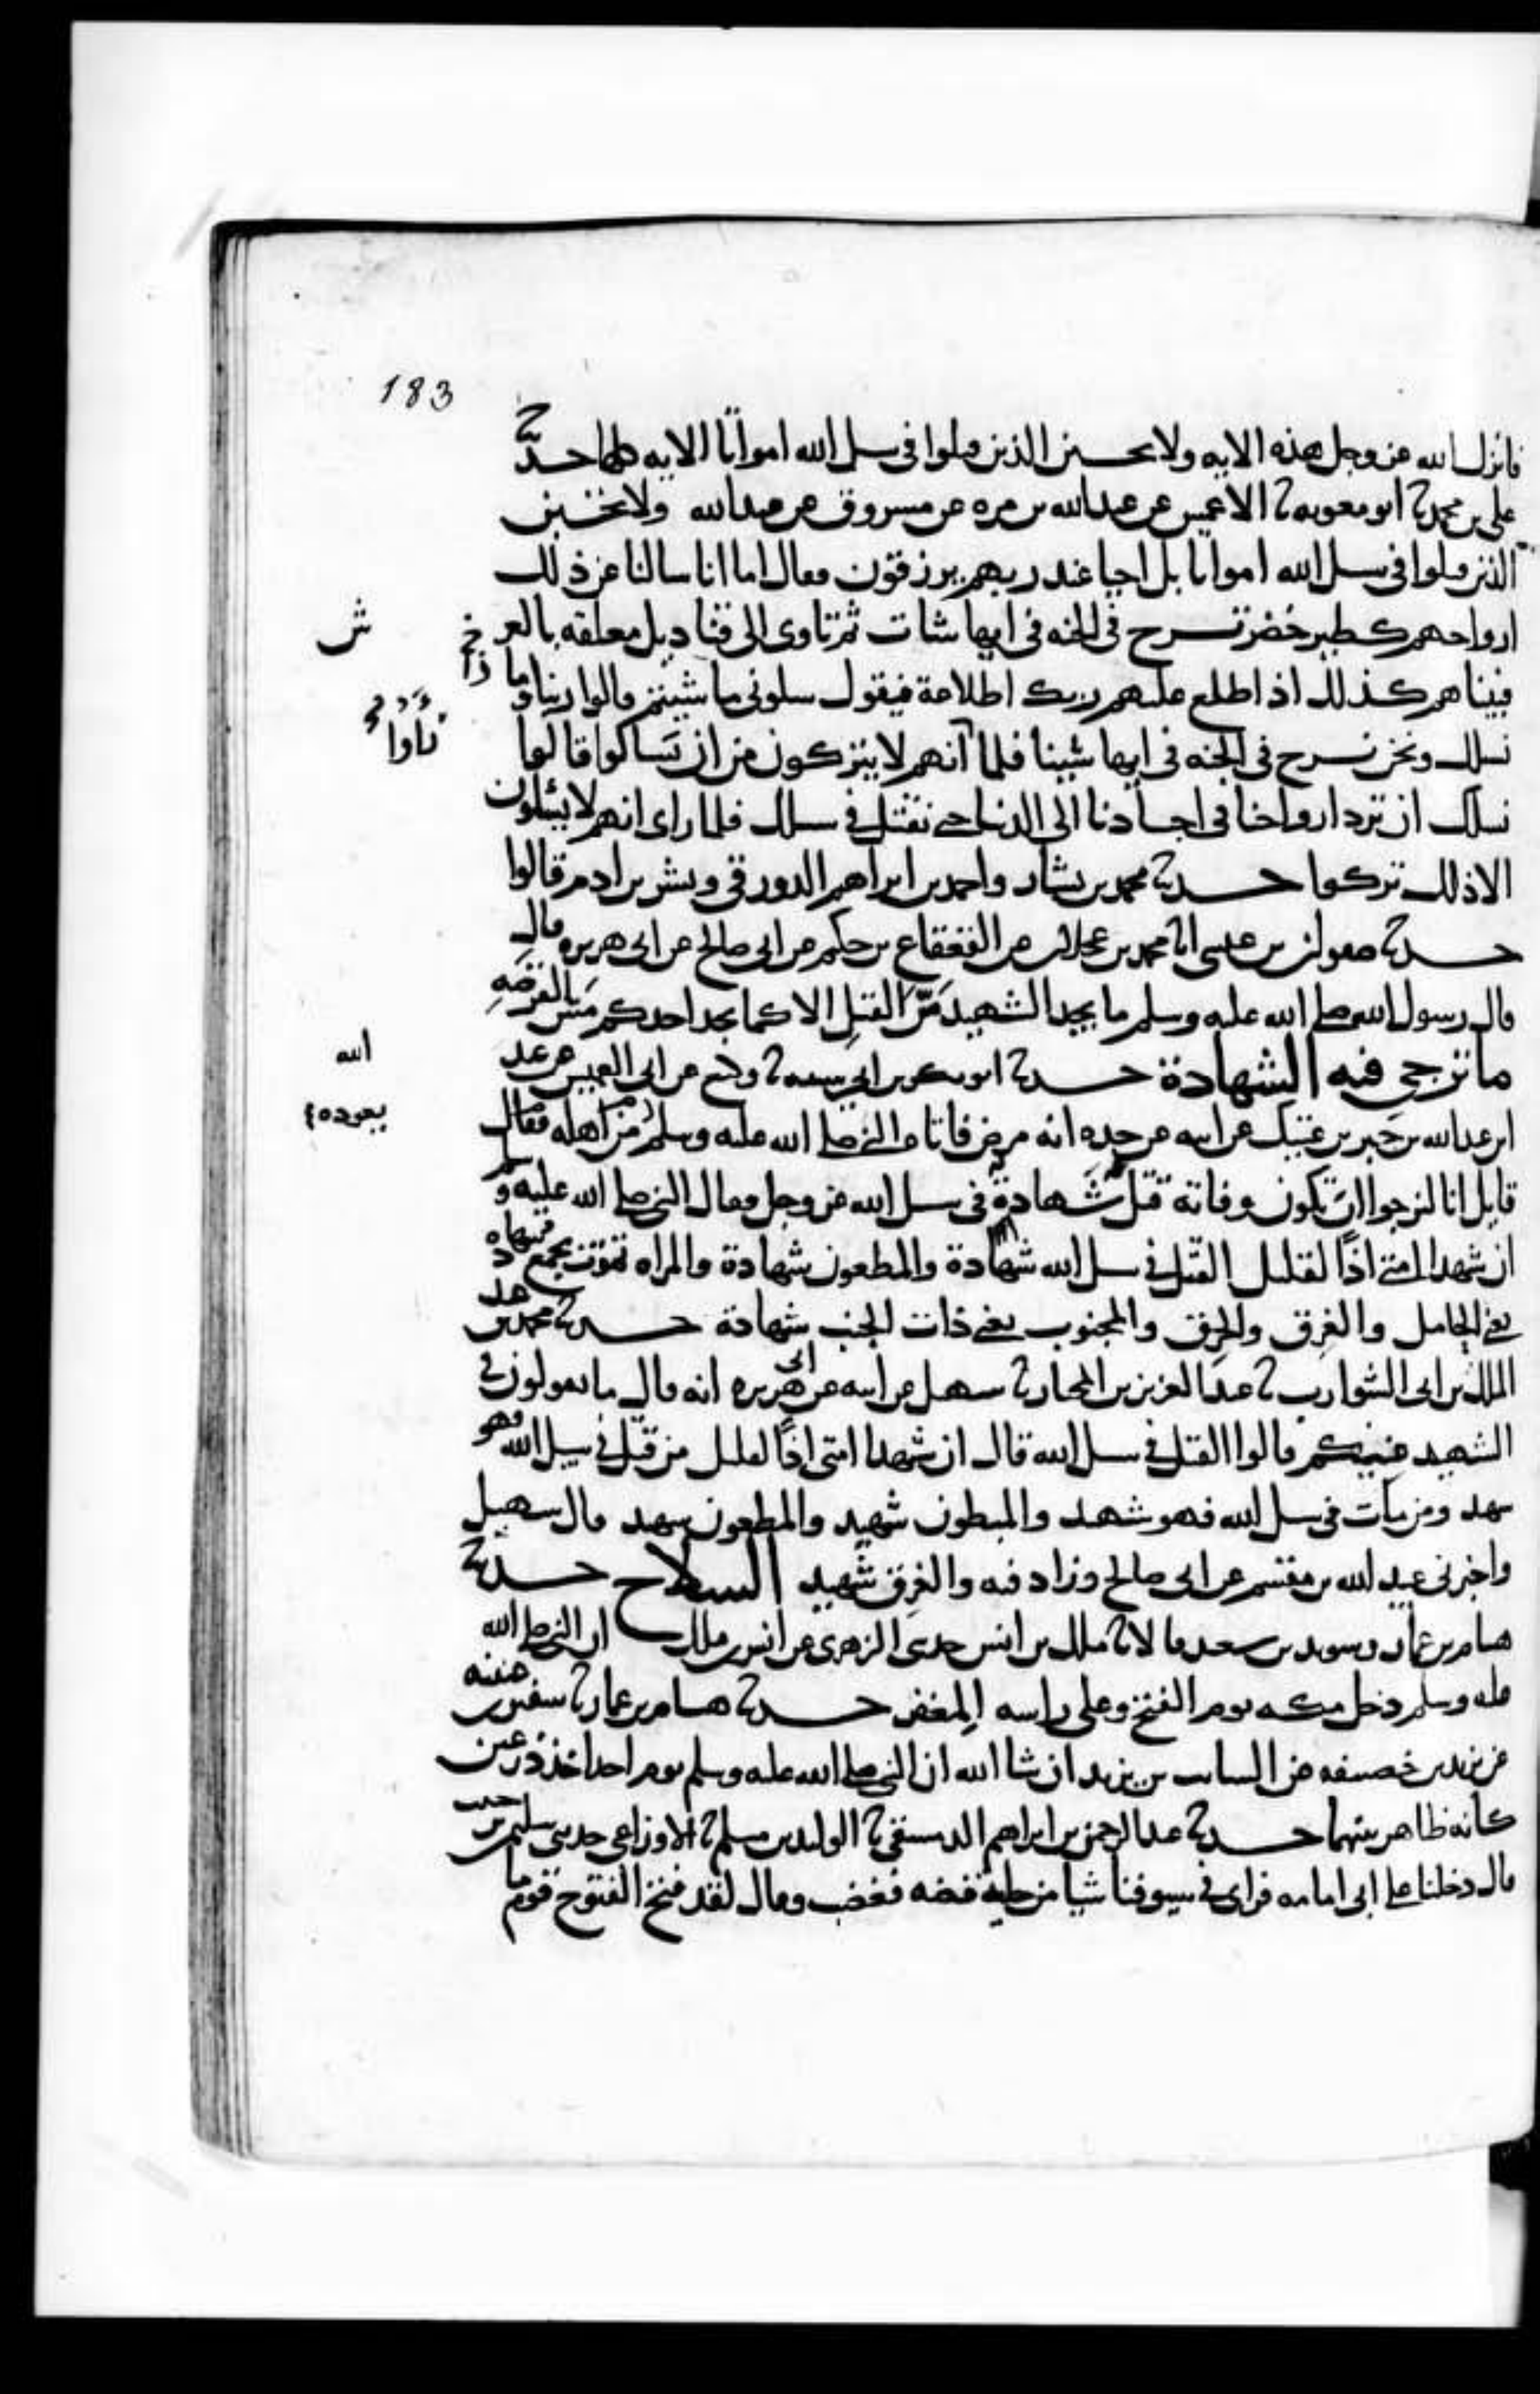 183
فانزل الله عز وجل هذه الايه ولا تحسبن الذين قتلوا في سبيل الله امواتا الايه كلها حدثنا
علي بن محمد ثنا ابو معويه ثنا الاعمش عن عبد الله بن مره عن مسروق عن عبد الله ولا تحسبن
الذين قتلوا في سبيل الله امواتا بل احيا عند ربهم يرزقون فقال اما انا سالنا عن ذلك
ارواحهم كطير خضر تسرح في الجنه في ايها شات ثم تاوى الى قناديل معلقه بالعر
ش
فبينا هم كذلك اذ اطلع عليهم ربك اطلاعة فيقول سلوني ما شيتم قالوا ربنا وما ذا
نسلك ونحن نسرح في الجنه في ايها شينا فلما انهم لا يتركون من ان يسالوا قالوا
رأوا
نسلك ان ترد ارواحنا في اجسادنا الى الدنيا حتى نقتل في سبيلك فلما راى انهم لا يسئلون
الا ذلك تركوا حدثنا محمد بن بشار واحمد بن ابراهيم الدورقي وبشر بن ادم قالوا
حدثنا صفوان بن عيسى انا محمد بن عجلان عن القعقاع بن حكيم عن ابي صالح عن ابي هريره قال
قال رسول الله صلى الله عليه وسلم ما يجد الشهيد مس القتل الا كما يجد احدكم مس القرصه
ما ترجى فيه الشهادة حدثنا ابو بكر بن ابي شيبه ثنا وكيع عن ابي العميس عن عبد
الله
ابن عبد الله بن جبر بن عتيك عن ابيه عن جده انه مرض فاتاه النبي صلى الله عليه وسلم من اهله فقال
يعوده
قايل انا لنرجوا ان تكون وفاته قتل شهادة في سبيل الله عز وجل فقال النبي صلى الله عليه وسلم
ان شهدا امتي اذا لقليل القتل في سبيل الله شهادة والمطعون شهادة والمراه تموت بجمع شهاده
يعني الحامل والغرق والحرق والمجنوب يعني ذات الجنب شهادة حدثنا محمد بن عبد
الملك بن ابي الشوارب ثنا عبد العزيز بن المختار ثنا سهيل عن ابيه عن ابي هريره انه قال ما تقولون في
الشهيد فيكم قالوا القتل في سبيل الله قال ان شهدا امتي اذا لقليل من قتل في سبيل الله فهو
شهيد ومن مات في سبيل الله فهو شهيد والمبطون شهيد والمطعون شهيد قال سهيل
واخبرني عبيد الله بن مقسم عن ابي صالح وزاد فيه والغرق شهيد السلاح حدثنا
هشام بن عمار وسويد بن سعيد قالا ثنا ملك بن انس حدثني الزهري عن انس بن ملك ان النبي صلى الله
عليه وسلم دخل مكه يوم الفتح وعلى راسه المغفر حدثنا هشام بن عمار ثنا سفين بن عيينه
عن يزيد بن خصيفه عن السايب بن يزيد ان شا الله ان النبي صلى الله عليه وسلم يوم احد اخذ درعين
كانه ظاهر بينهما حدثنا عبد الرحمن بن ابراهيم الدمشقي ثنا الوليد بن مسلم ثنا الاوزاعي حدثني سليمن بن حبيب
قال دخلنا على ابي امامه فراى في سيوفنا شيا من حلية فضه فغضب وقال لقد فتح الفتوح قوم ما